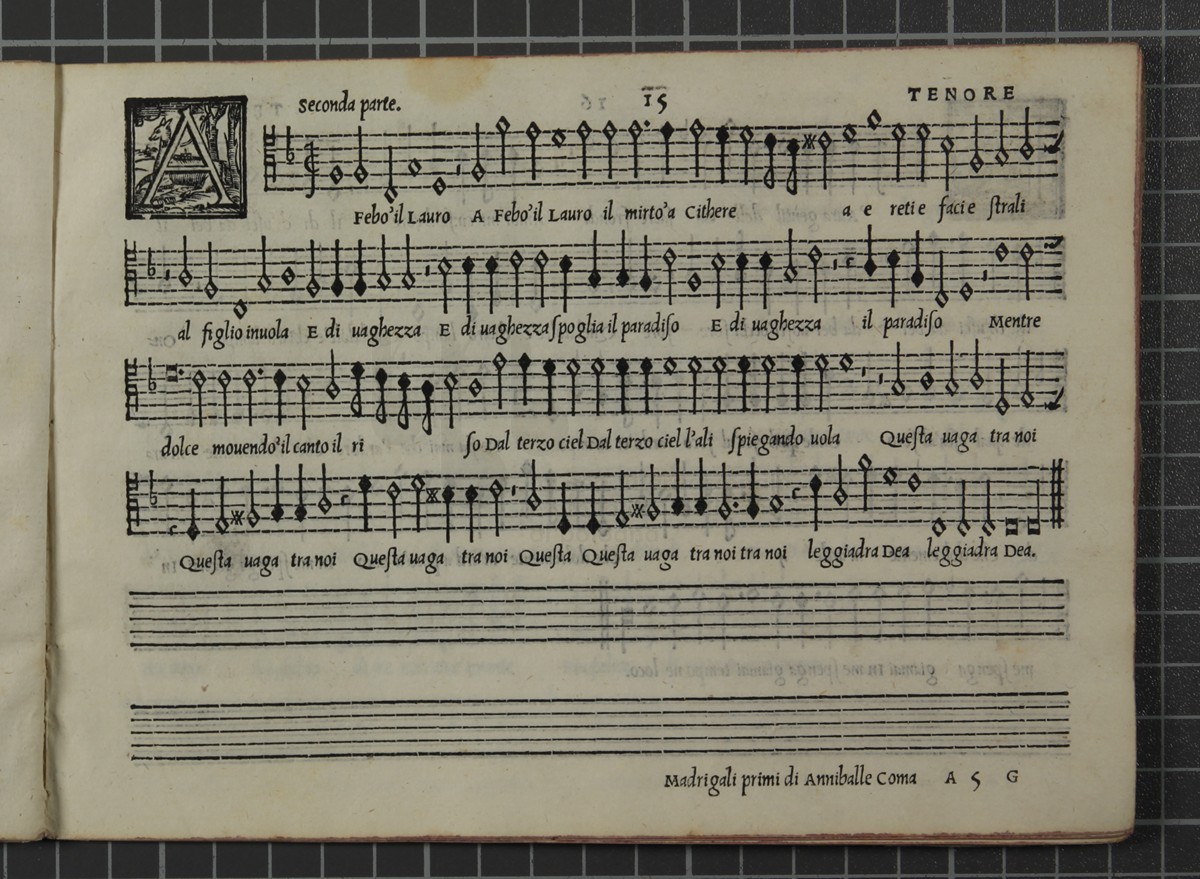 Seconda parte. 15 TENORE
A Febo'il Lauro A Febo'il Lauro il mirto'a Cithere a e reti e faci e ſtrali
al figlio inuola E di uaghezza E di uaghezza ſpoglia il paradiſo E di uaghezza il paradiſo Mentre
dolce mouendo'il canto il ri ſo Dal terzo ciel Dal terzo ciel l'ali ſpiegando uola Queſta uaga tra noi
Queſta uaga tra noi Queſta uaga tra noi Queſta Queſta uaga tra noi tra noi leggiadra Dea leggiadra Dea.
Madrigali primi di Anniballe Coma A 5 G